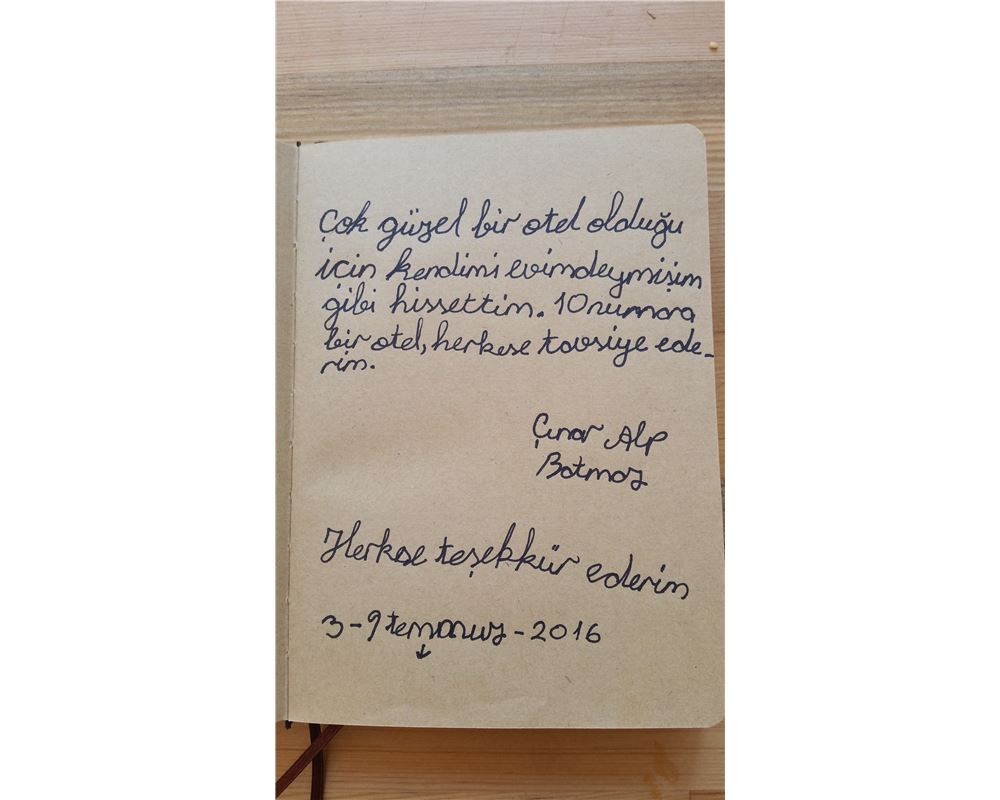 Çok güzel bir otel olduğu
için kendimi evimdeymişim
gibi hissettim. 10 numara
bir otel, herkese tavsiye ede-
rim.
Çınar Alp
Batmaz
Herkese teşekkür ederim
3-9 temmuz - 2016